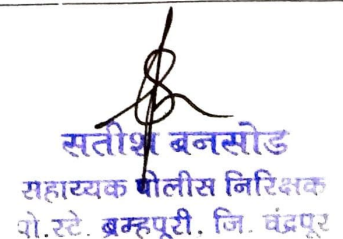 सतीश बनसोड
सहाय्यक पोलीस निरिक्षक
पो.स्टे. ब्रम्हपूरी. जि. चंद्रपूर